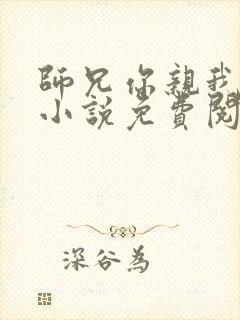 師兄你親我
小說免費閱
深谷為